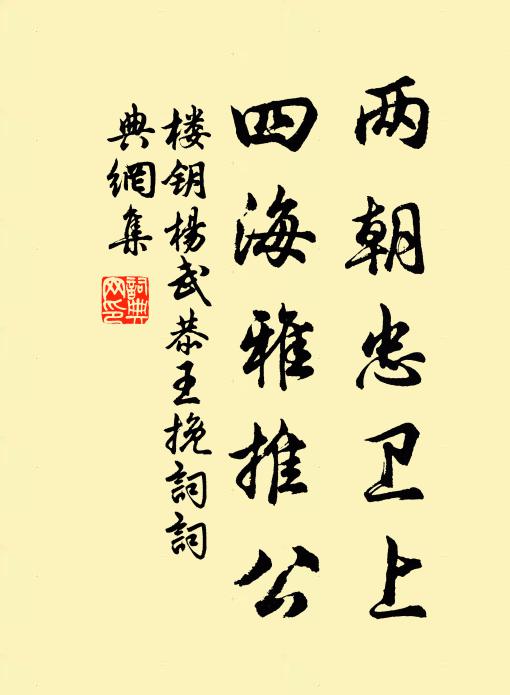 两朝忠卫上
四海雅推公
楼钥杨武恭王挽詞詞
典網集
詞典网印